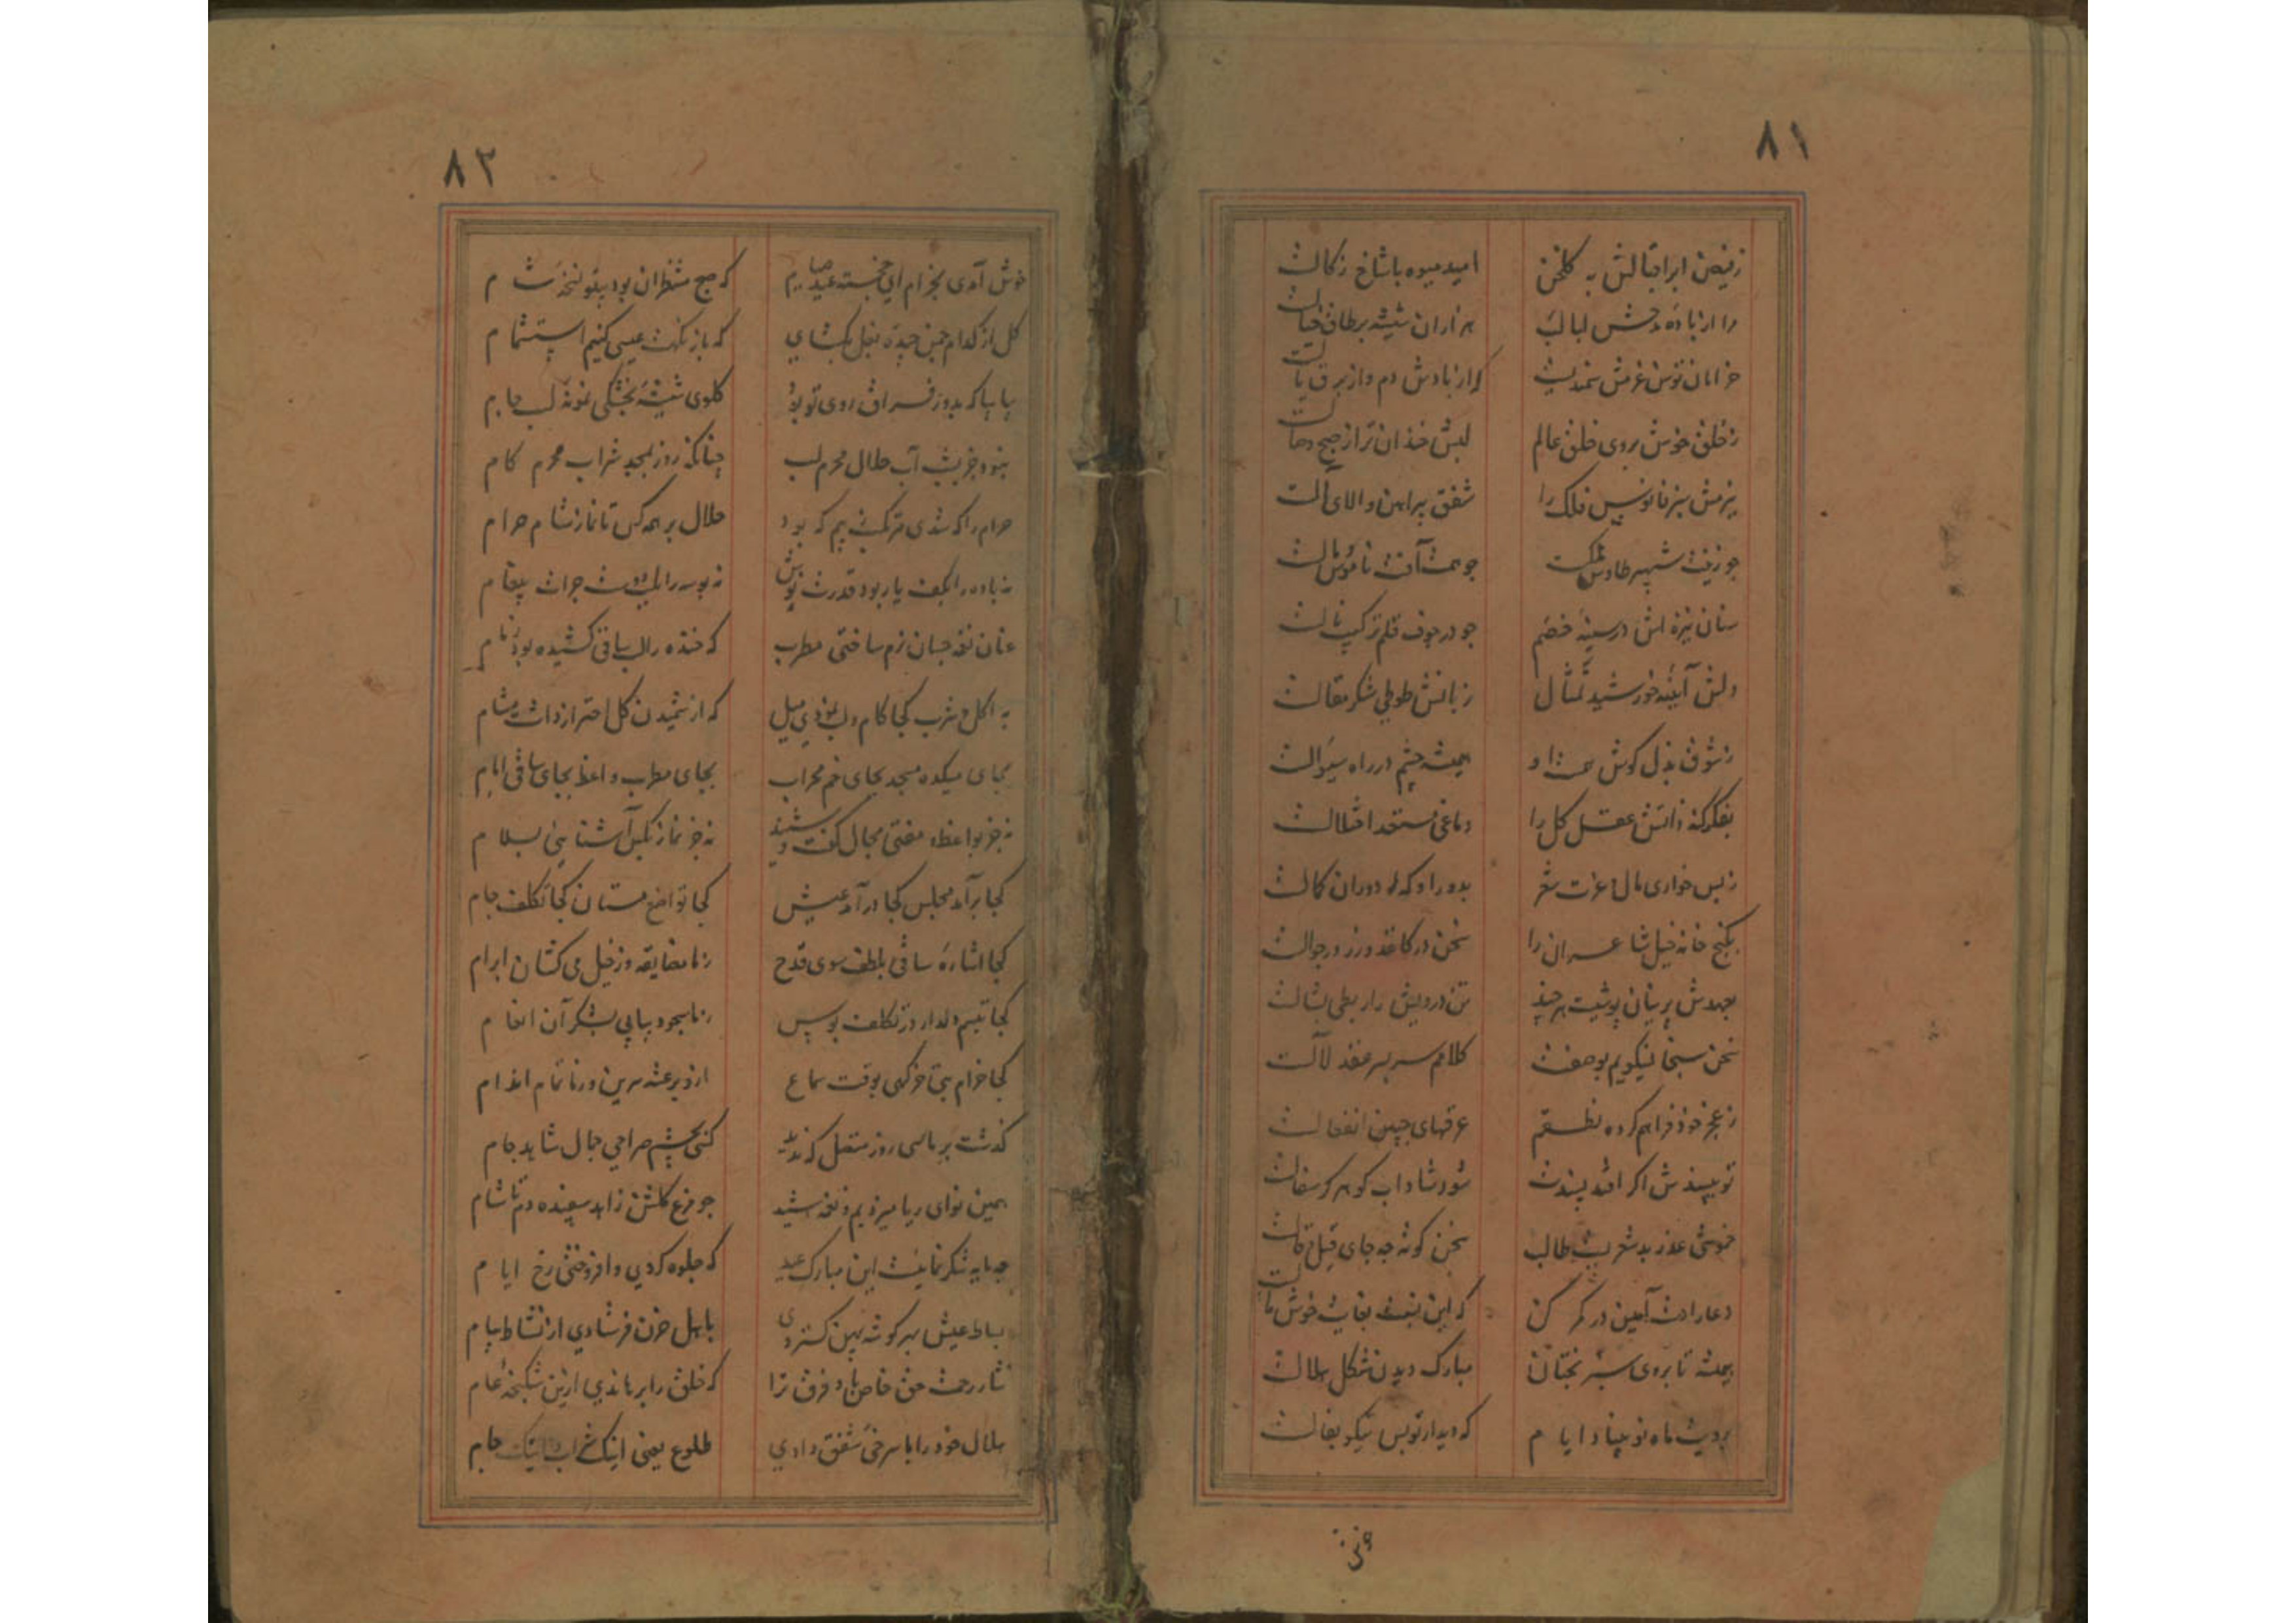 ۸۱
زفیض ابر اقبالش به گلخن امید میوه با شاخ زکالت
مرا از باده مدحش لبالب هزاران شیشه بر طاق خیالت
خرامان توسن عزمش سمندیست که از بادش دم و از برق یالت
ز خلق خوش بروی خلق عالم لبش خندان تر از صبح وصالت
ببزمش سبز فانوس فلک را شفق پیراهن والای آلت
چو زینت شهپر طاوس ملکت چو همت آفت ناموس مالت
سنان نیزه اش در سینه خصم چو در جوف قلم ترکیب نالت
دلش آیینه خورشید تمثال زبانش طوطی شکر مقالت
ز شوق بذل گوش همت او همیشه چشم در راه سوالت
بفکر کنه ذاتش عقل کل را دماغی مستعد اختلالت
ز بس خواری مال و عزت شعر بدور او که دوران کمالت
بکنج خانه خیل شاعران را سخن در کاغذ و زر در جوالت
بعهدش پرنیان پوشیست هر چند تن درویش را ربطی بشالت
سخن سنجا نیکویم بوصفت کلامم سر بسر عقد لآلت
ز عجز خود فراهم کرده نظمم عرقهای جبین انفعالت
تو بپسندش اگر افتد پسندت شود شاداب گوهر گر سفالت
خموشی عذر بد شعریست طالب سخن کوته چه جای قیل و قالت
دعا را دست آمین در کمر کن که این نسبت بغایت خوش مآلت
همیشه تا بروی سبز بختان مبارک دیدن شکل هلالت
برویت ماه نو بیناد ایام که دیدار تو بس نیکو بفالت
۸۲
خوش آمدی بخرام ای خجسته عید صیام که صبح منتظران بود بیتو لخت شام
گل از کدام چمن چیده بغل بگشای که باز نکهت عیسی کنیم استشمام
بیا بیا که بدور فراق روی تو بود گلوی شیشه بخشکی نمونه لب جام
نبود جز بشب آب حلال محرم لب چنانکه روز نمیشد شراب محرم کام
حرام را که شدی مرتکب بیم که بود حلال بر همه کس تا نماز شام حرام
نه باده را بکف یار بود قدرت نوش نه بوسه را بلب دوست جرات پیغام
عنان نغمه چسان نرم ساختی مطرب که خنده را لب ساقی کشیده بود زمام
به اکل و شرب کجا کام و لب نمودی میل که از شمیدن گل احتراز داشت مشام
بجای میکده مسجد بجای خم محراب بجای مطرب واعظ بجای ساقی امام
نه جز بواعظ و مفتی مجال گفت و شنید نه جز نماز بکس آشنایی بسلام
کجا برآمد مجلس کجا درآمد عیش کجا تواضع مستان کجا تکلف جام
کجا اشاره ساقی بلطف سوی قدح ز ما مضایقه وز خیل می کشان ابرام
کجا تبسم دلدار در تکلف بوس ز ما سجود پیاپی بشکر آن انعام
کجا خرام بتی خرگهی بوقت سماع ازو برعشه سرین وز ما تمام اندام
گذشت بر ما سی روز متصل که ندید کسی بچشم صراحی جمال شاهد جام
همین نوای ریا میزدیم و نغمه شید چو مرغ گلشن زاهد سپیده دم تا شام
چه مایه شکر نماییمت این مبارک عید که جلوه کردی و افروختی رخ ایام
بساط عیش بهر گوشه پهن گستردی باهل حزن فرستادی از نشاط پیام
نثار رحمت حق خاص باد فرق ترا که خلق را برهاندی ازین شکنجه عام
هلال خود را با سرخی شفق دادی طلوع یعنی اینک شراب اینک جام